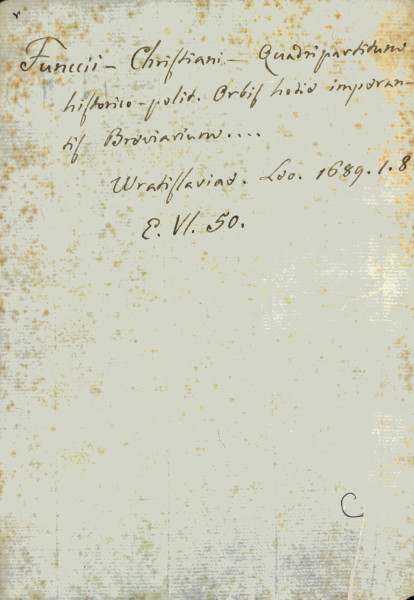 Funccii – Christiani – Quadripartitum
historico-polit. Orbis hodie imperan-
tis Breviarium....
Wratislaviae. Leo. 1689. 1. 8
E. VI. 50.
C